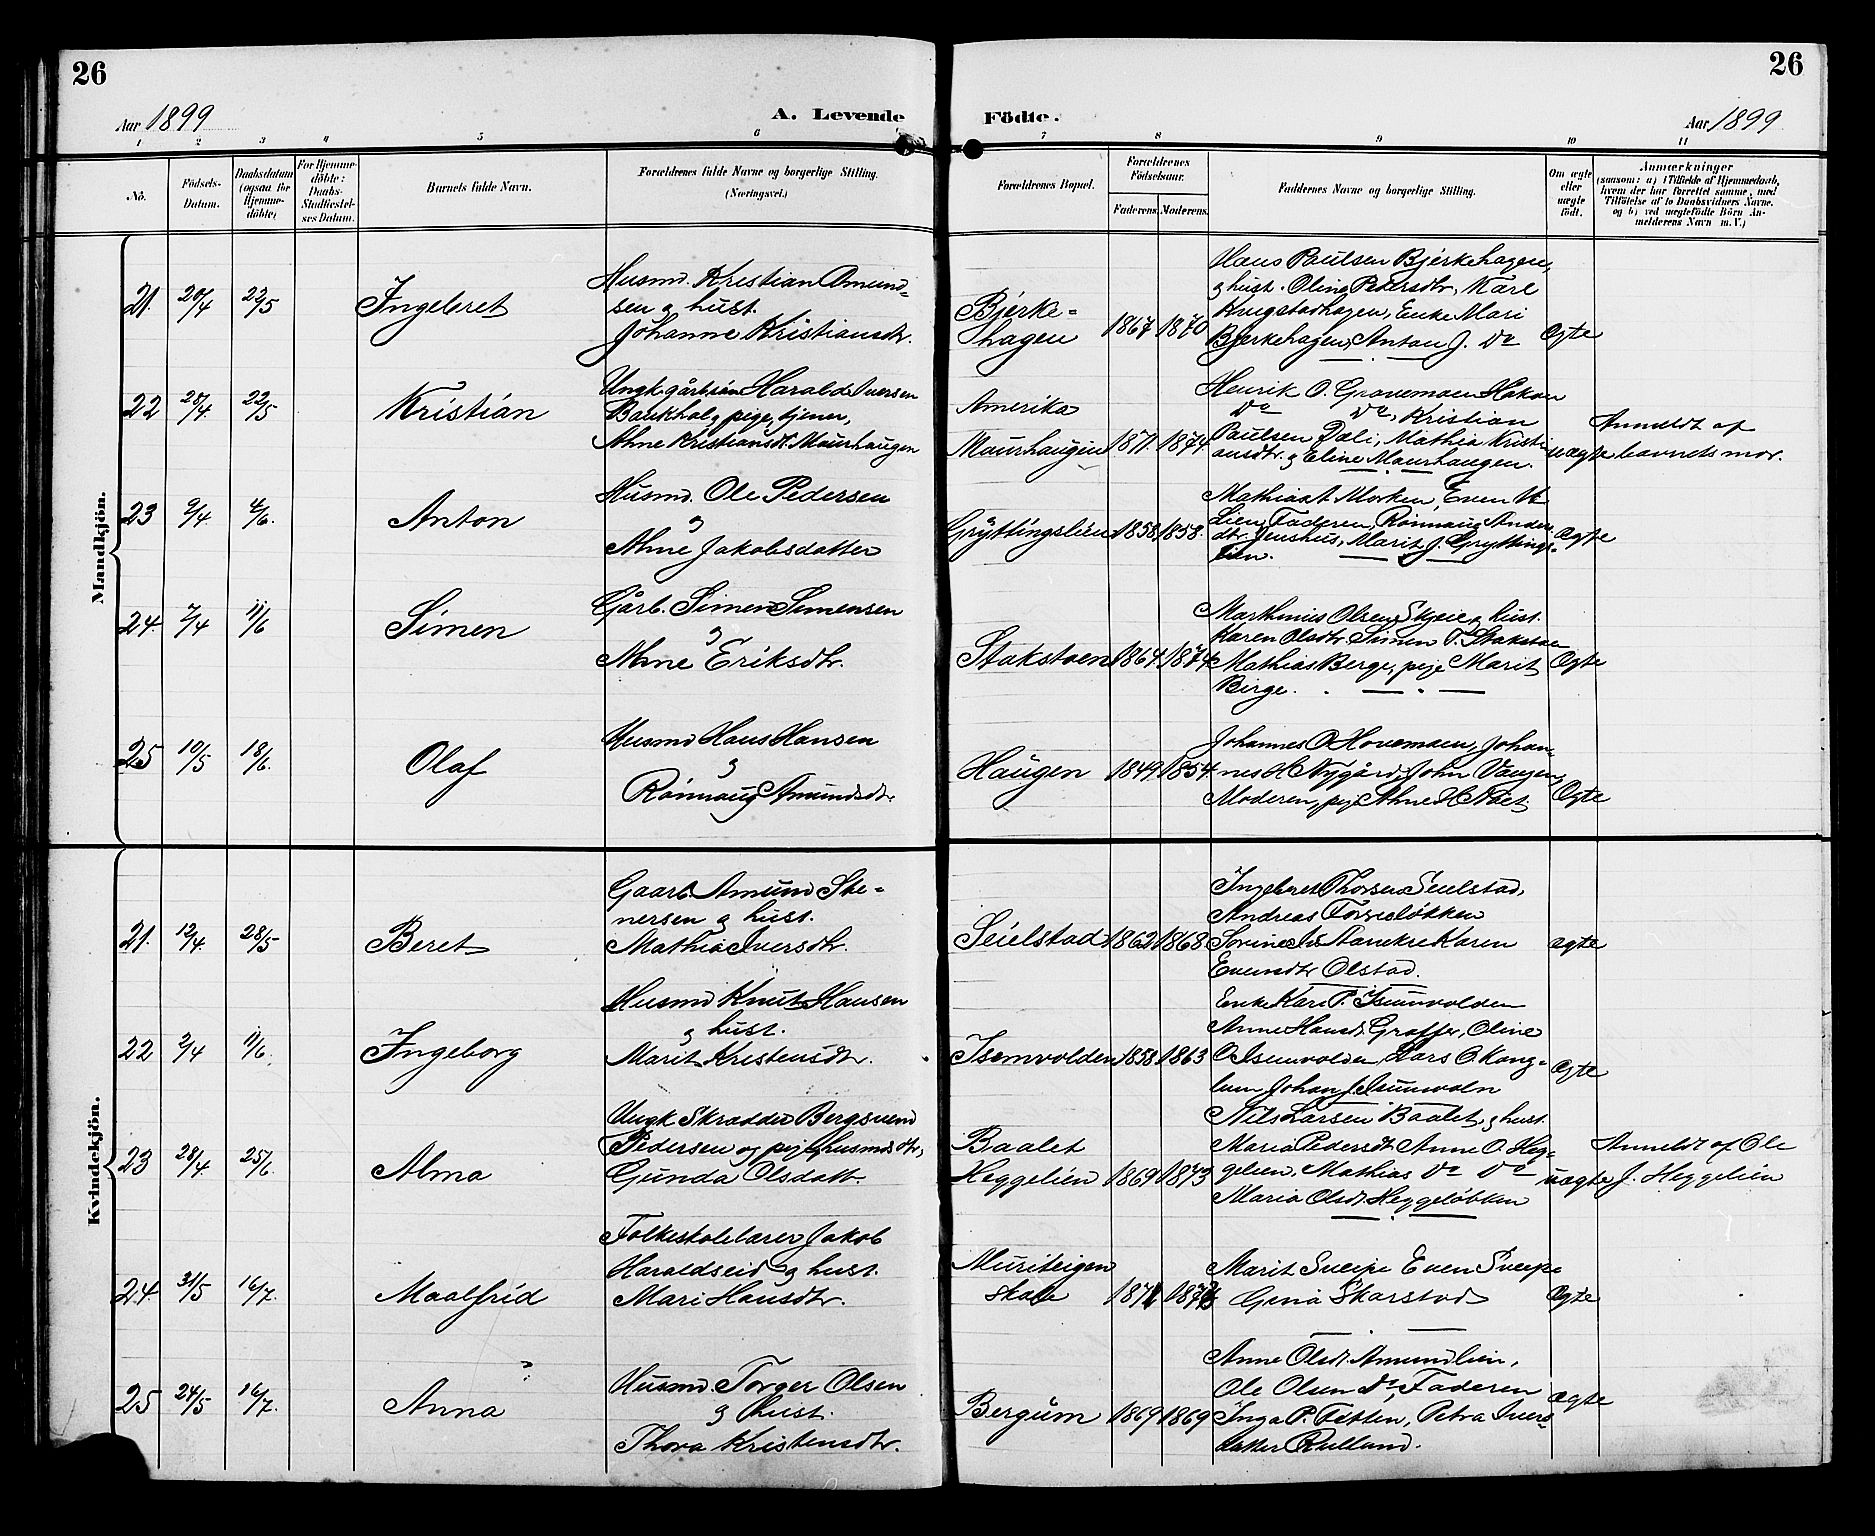 26
26
Aar 1899
A. Levende
Födte.
Aar 1899.
1 2 3 4 5 6 7 8 9 10 11
No.
Födsels-
Datum.
Daabsdatum
(ogsaa for
Hjemme-
döbte)
For Hjemme-
döbte:
Daabs-
Stadfæstel-
ses Datum.
Barnets fulde Navn.
Forældrenes fulde Navne og borgerlige Stilling.
(Næringsvei.)
Forældrenes Bopæl.
Forældrenes
Födselsaar.
Faderens.
Moderens.
Faddernes Navne og borgerlige Stilling.
Om ægte
eller
uægte
födt.
Anmærkninger
(saasom: a) i Tilfælde af Hjemmedaab,
hvem der har forrettet samme, med
Tilföielse af to Daabsvidners Navne.
og b) ved uægtefödte Börn An-
melderens Navn m. V.)
Mandkjön.
21. 20/4 22/5
Ingebret
Husmd. Kristian Amund-
sen & hust.
Johanne Kristiansdtr.
Bjerke-
hagen
1867 1870
Hans Paulsen Bjerkehagen,
& hust. Oline Pedersdtr, Kari
Krugstadhagen, Enke Mari
Bjerkehagen, Anton J. Do
Ægte
22 20/4. 22/5
Kristian
Ungk. gårbr.sön Harald Iversen
Bakkhol & pige, tjener,
Ahne Kristiansdt. Maurhaugen
Amerika
Maurhaugen
1871. 1874.
Henrik O. Gravemoen Håkon
Do Do, Kristian
Paulsen Dæli, Mathia Kristi-
ansdtr. & Eline Maurhaugen.
uægte
Anmeldt af
barnets mor.
23 9/4 4/6.
Anton
Husmd. Ole Pedersen
&
Ahne Jakobsdatter
Gryttingslien
1858 1858.
Mathias A Morken, Even
Lien, Faderen, Rönnaug Anders-
dtr. Jenshus, Marit J. Gryttings-
lien.
Ægte
24. 7/4 11/6
Simen
Gårb. Simen Simensen
&
Ahne Eriksdtr.
Stakstoen
1864. 1874
Marthinus Olsen Skjeie & hust.
Karen Olsdtr. Simen T. Stakstoen
Mathias Berge, pige Marit
Berge.
Ægte
25 10/5 18/6.
Olaf
Husmd Hans Hansen
&
Rönnaug Amundsdtr.
Haugen
1849 1854
Johannes O Hovemoen, Johan-
nes H. Nygård, John Vangen,
Moderen, pige Ahne H Næt.
Ægte
Kvindekjön.
21. 12/4. 28/5
Beret
Gaarb. Amund Ste-
nersen & hust.
Mathia Iversdtr.
Seielstad
1862 1868
Ingebret Thorsen Seielstad,
Andreas Forseløkken
Karen
Evensdtr Olstad.
ægte
22 2/4 11/6.
Ingeborg
Husmd Knut Hansen
& hust.
Marit Kristensdtr.
Isumvolden
1858 1863
Enke Kari P. Isumvolden
Anne Hansd. Graffer, Oline
O Isumvolden, Lars O. Kong-
Johan J. Isumvoln
Ægte
23 28/4. 25/6.
Alma
Ungk Skrædder Bergsvend
Pedersen og pige husmdsdtr,
Gunda Olsdatt.
Baalet
Heggelien
1869 1873
Nils Larsen Baalet, & hust.
Maria Pedersdt. Anne O. Heg-
gelien, Mathias Do Do
Maria Olsdt. Heggeløkken
uægte
Anmeldt af Ole
J. Heggelien
24. 31/5 16/7.
Maalfrid
Folkeskolelærer Jakob
Haraldseid & hust.
Mari Hansdtr.
Muriteigen
skole
1871 1873
Marit Sveipe Even Sveipe
Gina Skarstad
Ægte
25 24/5 16/7.
Anna
Husmd. Torger Olsen
& hust.
Thora Kristensdtr.
Bergum
1869 1869
Anne Olsdt. Amundlien,
Ole Olsen Do, Faderen
Inga P. Fetten, Petra Ivers-
datter Rulland.
ægte